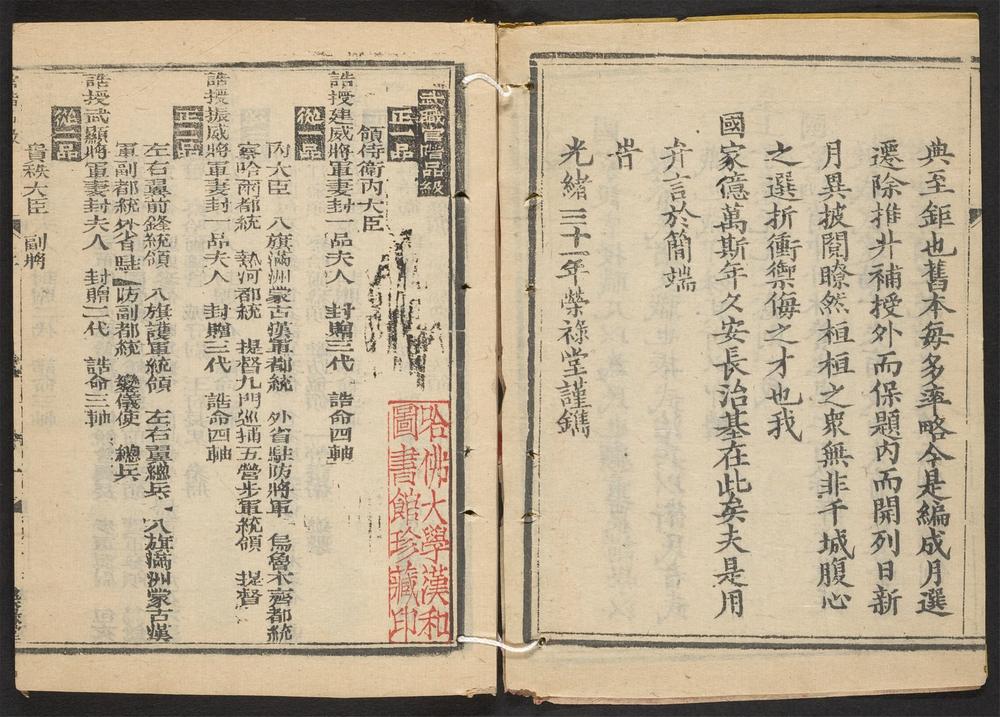 典至鉅也舊本每多率略今是編成月選
遷除推升補授外而保題內而開列日新
月異披閱瞭然桓桓之衆無非干城腹心
之選折衝禦侮之才也我
國家億萬斯年久安長治基在此矣夫是用
弁言於簡端
旹
光緒三十一年榮祿堂謹鐫
武職官階品級
正一品
領侍衛內大臣
誥授建威將軍妻封一品夫人 封贈三代 誥命四軸
從一品
內大臣 八旗滿洲蒙古漢軍都統 外省駐防將軍 烏魯木齊都統
察哈爾都統 熱河都統 提督九門巡捕五營步軍統領 提督
誥授振威將軍妻封一品夫人 封贈三代 誥命四軸
正二品
左右翼前鋒統領 八旗護軍統領 左右翼總兵 八旗滿洲蒙古漢
軍副都統 外省駐防副都統 鑾儀使 總兵
誥授武顯將軍妻封夫人 封贈二代 誥命三軸
從二品
散秩大臣 副將
哈佛大學漢和
圖書館珍藏印